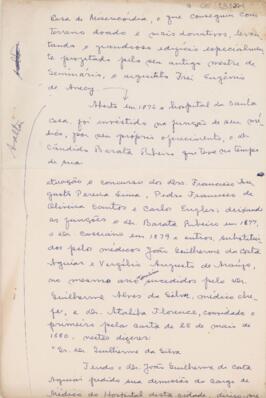 Casa de Misericórdia, o que conseguiu com
terreno doado e mais donativos, levan-
tando o grandioso edifício especialmen-
te projetado pelo seu antigo mestre de
Seminário, o arquiteto Frei Eugênio
de
Aberto em 1876 o hospital da Santa
Casa, foi investido na função de seu mé-
dico, por seu próprio oferecimento, o dr.
Cândido Barata Ribeiro que teve no tempo
de sua
atuação o concurso dos drs. Francisco Au-
gusto Pereira Lima, Pedro Francisco de
Oliveira Santos e Carlos Engler, deixando
as funções o dr. Barata Ribeiro em 1877,
o dr. em 1879 e outros, substituí-
dos pelos médicos João Guilherme da Costa
Aguiar e Vergílio Augusto de Araújo,
no mesmo ano sucedidos pelo dr.
Guilherme Alves da Silva, médico che-
fe, e dr. Ataliba Florence, convidado o
primeiro pela carta de 25 de maio de
1880, nestes dizeres:
"Sr. Dr. Guilherme da Silva
Tendo o dr. João Guilherme da Costa
Aguiar pedido sua demissão do cargo de
Médico do Hospital desta cidade,